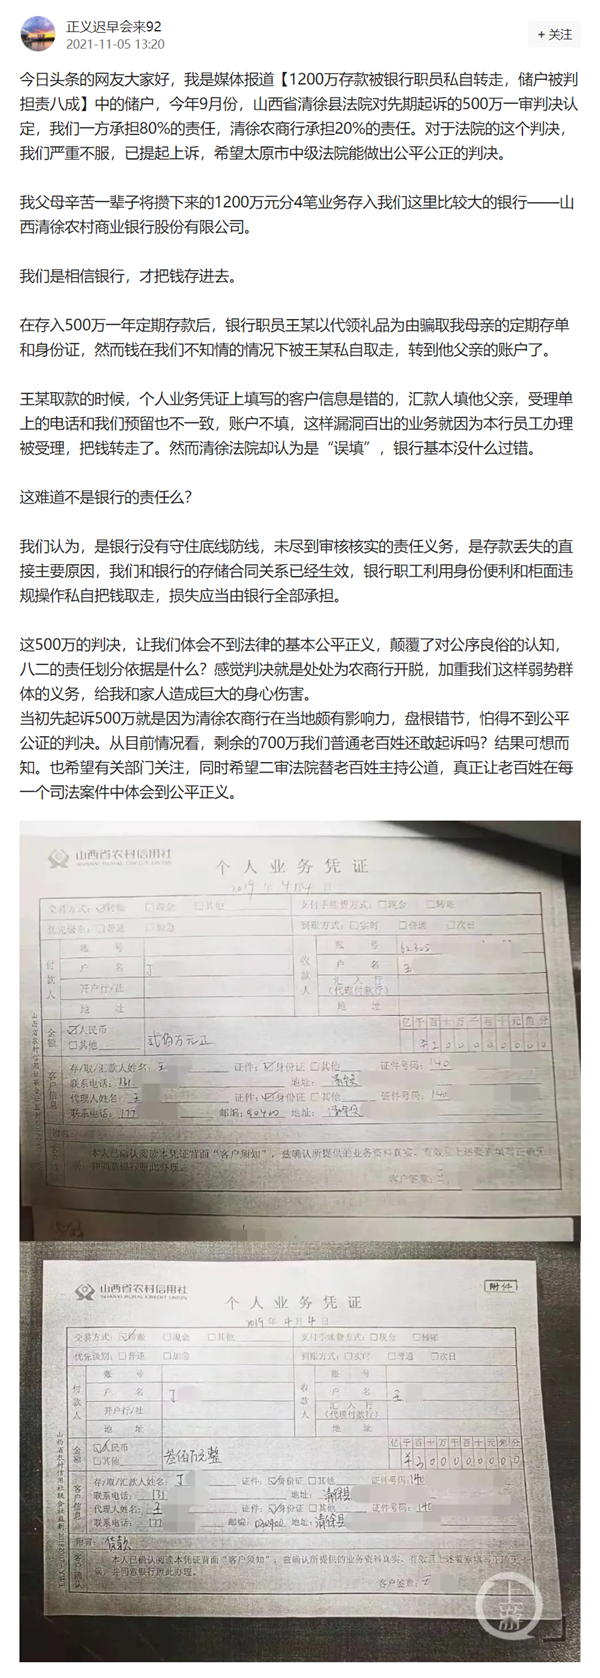 正义迟早会来92
2021-11-05 13:20
+ 关注
今日头条的网友大家好，我是媒体报道【1200万存款被银行职员私自转走，储户被判
担责八成】中的储户，今年9月份，山西省清徐县法院对先期起诉的500万一审判决认
定，我们一方承担80%的责任，清徐农商行承担20%的责任。对于法院的这个判决，
我们严重不服，已提起上诉，希望太原市中级法院能做出公平公正的判决。
我父母辛苦一辈子将攒下来的1200万元分4笔业务存入我们这里比较大的银行——山
西清徐农村商业银行股份有限公司。
我们是相信银行，才把钱存进去。
在存入500万一年定期存款后，银行职员王某以代领礼品为由骗取我母亲的定期存单
和身份证，然而钱在我们不知情的情况下被王某私自取走，转到他父亲的账户了。
王某取款的时候，个人业务凭证上填写的客户信息是错的，汇款人填他父亲，受理单
上的电话和我们预留也不一致，账户不填，这样漏洞百出的业务就因为本行员工办理
被受理，把钱转走了。然而清徐法院却认为是“误填”，银行基本没什么过错。
这难道不是银行的责任么？
我们认为，是银行没有守住底线防线，未尽到审核核实的责任义务，是存款丢失的直
接主要原因，我们和银行的存储合同关系已经生效，银行职工利用身份便利和柜面违
规操作私自把钱取走，损失应当由银行全部承担。
这500万的判决，让我们体会不到法律的基本公平正义，颠覆了对公序良俗的认知，
八二的责任划分依据是什么？感觉判决就是处处为农商行开脱，加重我们这样弱势群
体的义务，给我和家人造成巨大的身心伤害。
当初先起诉500万就是因为清徐农商行在当地颇有影响力，盘根错节，怕得不到公平
公证的判决。从目前情况看，剩余的700万我们普通老百姓还敢起诉吗？结果可想而
知。也希望有关部门关注，同时希望二审法院替老百姓主持公道，真正让老百姓在每
一个司法案件中体会到公平正义。
山西省农村信用社
个人业务凭证
2019年4月4日
交易方式：☑转账 □现金 □其他 支付手续费方式：□现金 □转账
优先级别：□普通 □加急 到账方式：□实时 □普通 □次日
付款人 账号 收款人 账号 62305
户名 丁 户名 王
开户行/社 汇入行（代理付款行）
地址 地址
金额 ☑人民币 □其他 贰佰万元正 亿千百十万千百十元角分
客户信息 存/取/汇款人姓名：王 证件：☑身份证 □其他 证件号码：140
联系电话：131 地址：清徐
代理人姓名：王 证件：☑身份证 □其他 证件号码：140
联系电话：177 邮编： 地址：清徐
本人已确认阅读本凭证背面“客户须知”，兹确认所提供的业务资料真实、有效
客户签章：王
山西省农村信用社
SHANXI RURAL CREDIT UNION
附件
个人业务凭证
2019年4月4日
交易方式：☑转账 □现金 □其他 支付手续费方式：□现金 □转账
优先级别：□普通 □加急 到账方式：□实时 □普通 □次日
付款人 账号 收款人 账号
户名 丁 户名 王
开户行/社 汇入行（代理付款行）
地址 地址
金额 ☑人民币 □其他 叁佰万元整 亿千百十万千百十元角分 ¥300000000
客户信息 存/取/汇款人姓名：丁 证件：☑身份证 □其他 证件号码：140
联系电话：131 地址：清徐县
代理人姓名：王 证件：☑身份证 □其他 证件号码：140
联系电话：177 邮编：030400 地址：清徐县
附言：货款
客户确认 本人已确认阅读本凭证背面“客户须知”，兹确认所提供的业务资料真实、有效
并同意银行照此办理。
客户签章：王
上游